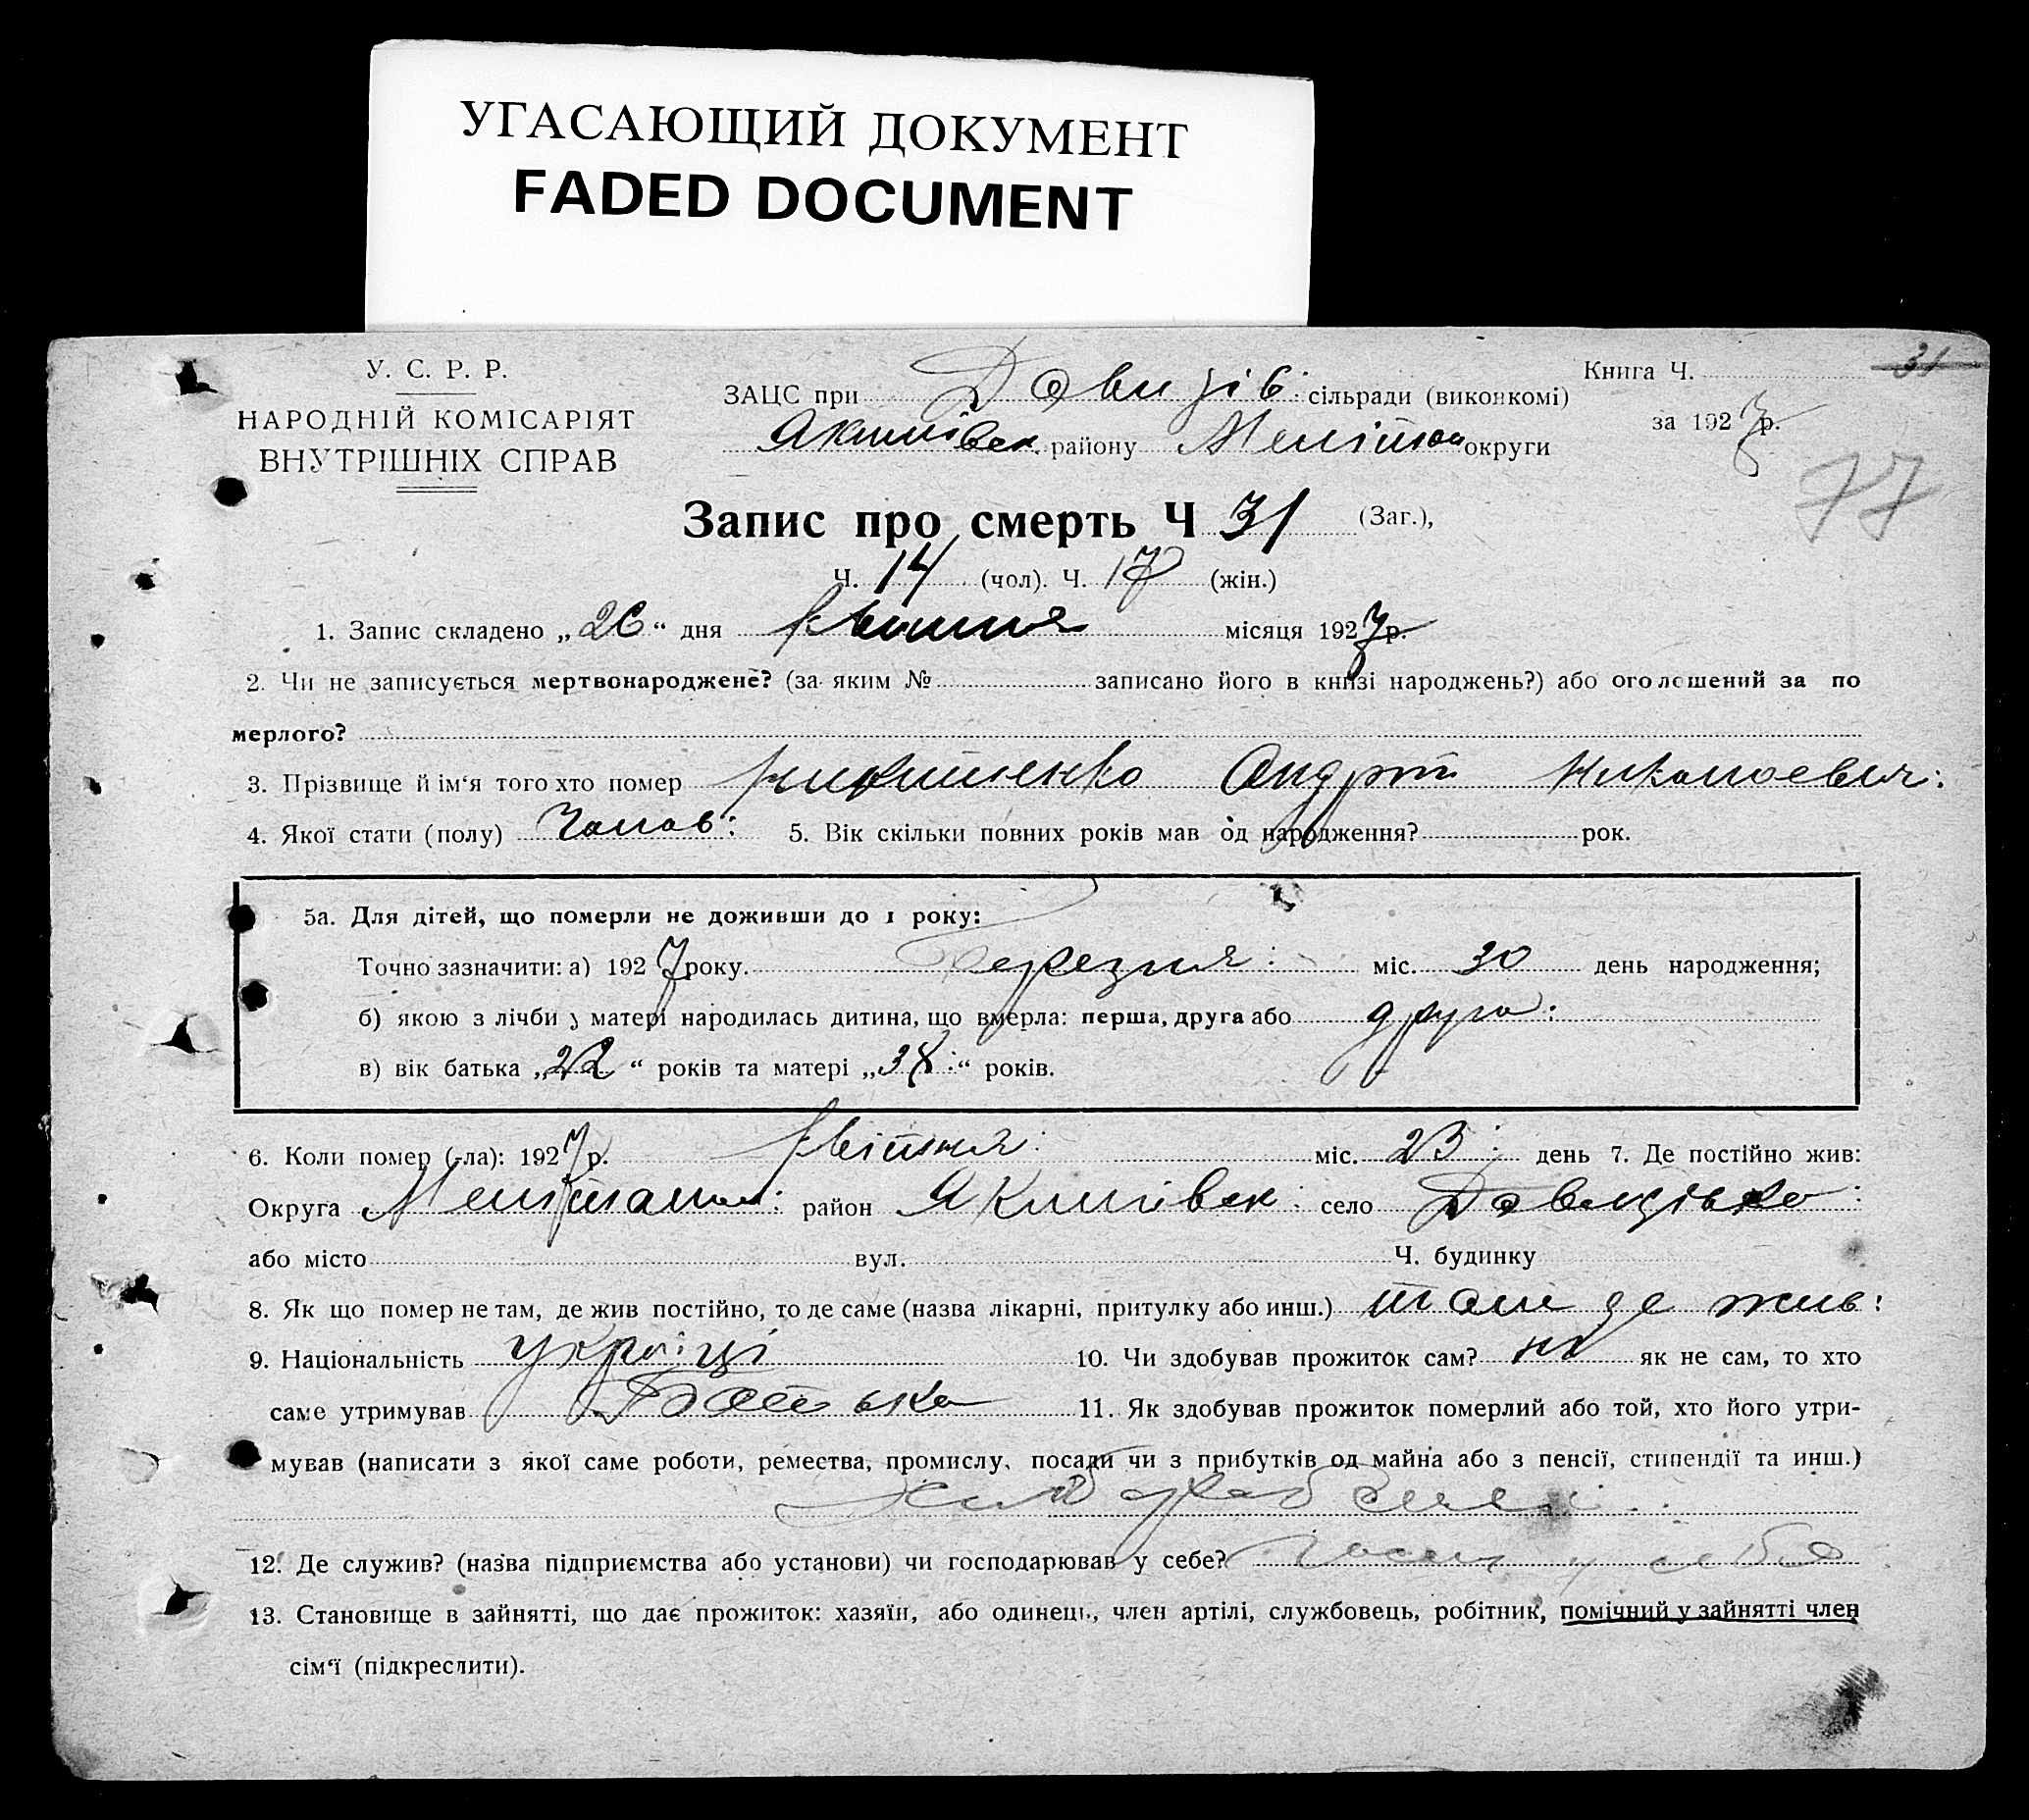 УГАСАЮЩИЙ ДОКУМЕНТ
FADED DOCUMENT
У. С. Р. Р.
НАРОДНІЙ КОМІСАРІЯТ
ВНУТРІШНІХ СПРАВ
ЗАЦС при Давидів: сільради (виконкомі)
Якимівск. району Меліто округи
Книга Ч. 31
за 1927 р.
77
Запис про смерть Ч 31 (Заг.),
Ч. 14 (чол). Ч. 17 (жін.)
1. Запис складено „26“ дня квітня місяця 1927 р.
2. Чи не записується мертвонароджене? (за яким № записано його в книзі народжень?) або оголошений за по
мерлого?
3. Прізвище й ім‘я того хто помер Андрій Николаевич:
4. Якої стати (полу) Чолов: 5. Вік скільки повних років мав од народження? рок.
5а. Для дітей, що померли не доживши до 1 року:
Точно зазначити: а) 1927 року. Березня: міс. 30 день народження;
б) якою з лічби у матері народилась дитина, що вмерла: перша, друга або друга:
в) вік батька „22“ років та матері „ “ років.
6. Коли помер (-ла): 1927 р. квітня: міс. 23: день 7. Де постійно жив:
Округа район Якимівск: село Давидівка:
або місто вул. Ч. будинку
8. Як що помер не там, де жив постійно, то де саме (назва лікарні, притулку або инш.) там де жив:
9. Національність україці 10. Чи здобував прожиток сам? ні як не сам, то хто
саме утримував Батько 11. Як здобував прожиток померлий або той, хто його утри-
мував (написати з якої саме роботи, ремества, промислу, посади чи з прибутків од майна або з пенсії, стипендії та инш.)
12. Де служив? (назва підприємства або установи) чи господарював у себе? у себе
13. Становище в зайнятті, що дає прожиток: хазяїн, або одинець, член артілі, службовець, робітник, помічний у зайнятті член
сім‘ї (підкреслити).